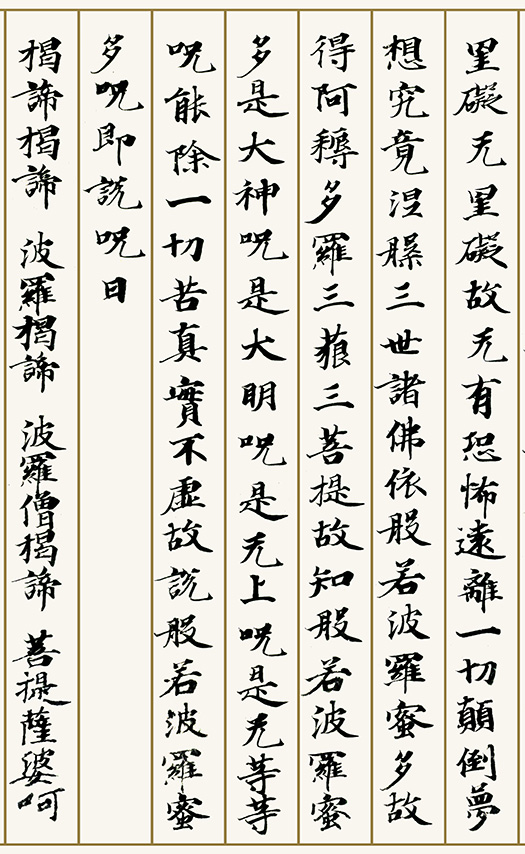 罣礙无罣礙故无有恐怖遠離一切顛倒夢
想究竟涅槃三世諸佛依般若波羅蜜多故
得阿耨多羅三藐三菩提故知般若波羅蜜
多是大神呪是大明呪是无上呪是无等等
呪能除一切苦真實不虛故說般若波羅蜜
多呪即說呪曰
揭諦揭諦 波羅揭諦 波羅僧揭諦 菩提薩婆呵